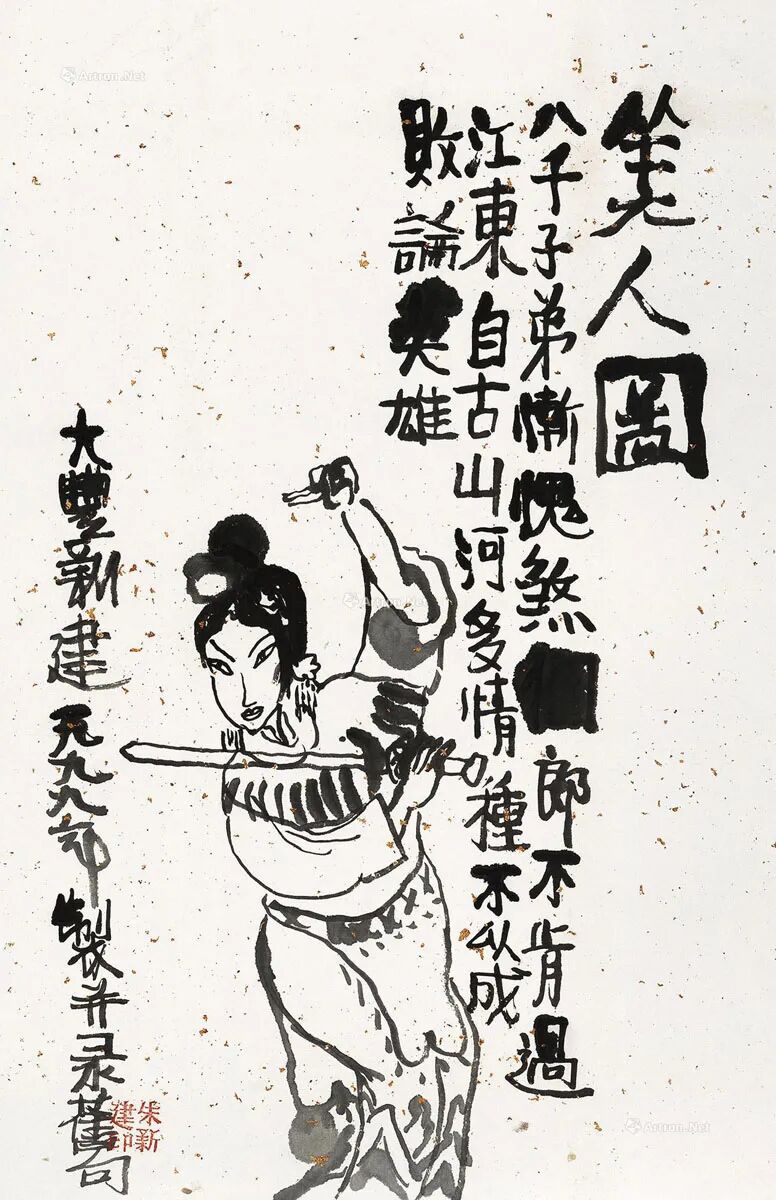 美人圖
八千子弟慚愧煞郎不肯過
江東自古山河多情種不以成
敗論英雄
大豐新建一九九九年製并录舊句
朱新建印
Artron.Net
Artron.Net
Artron.Net